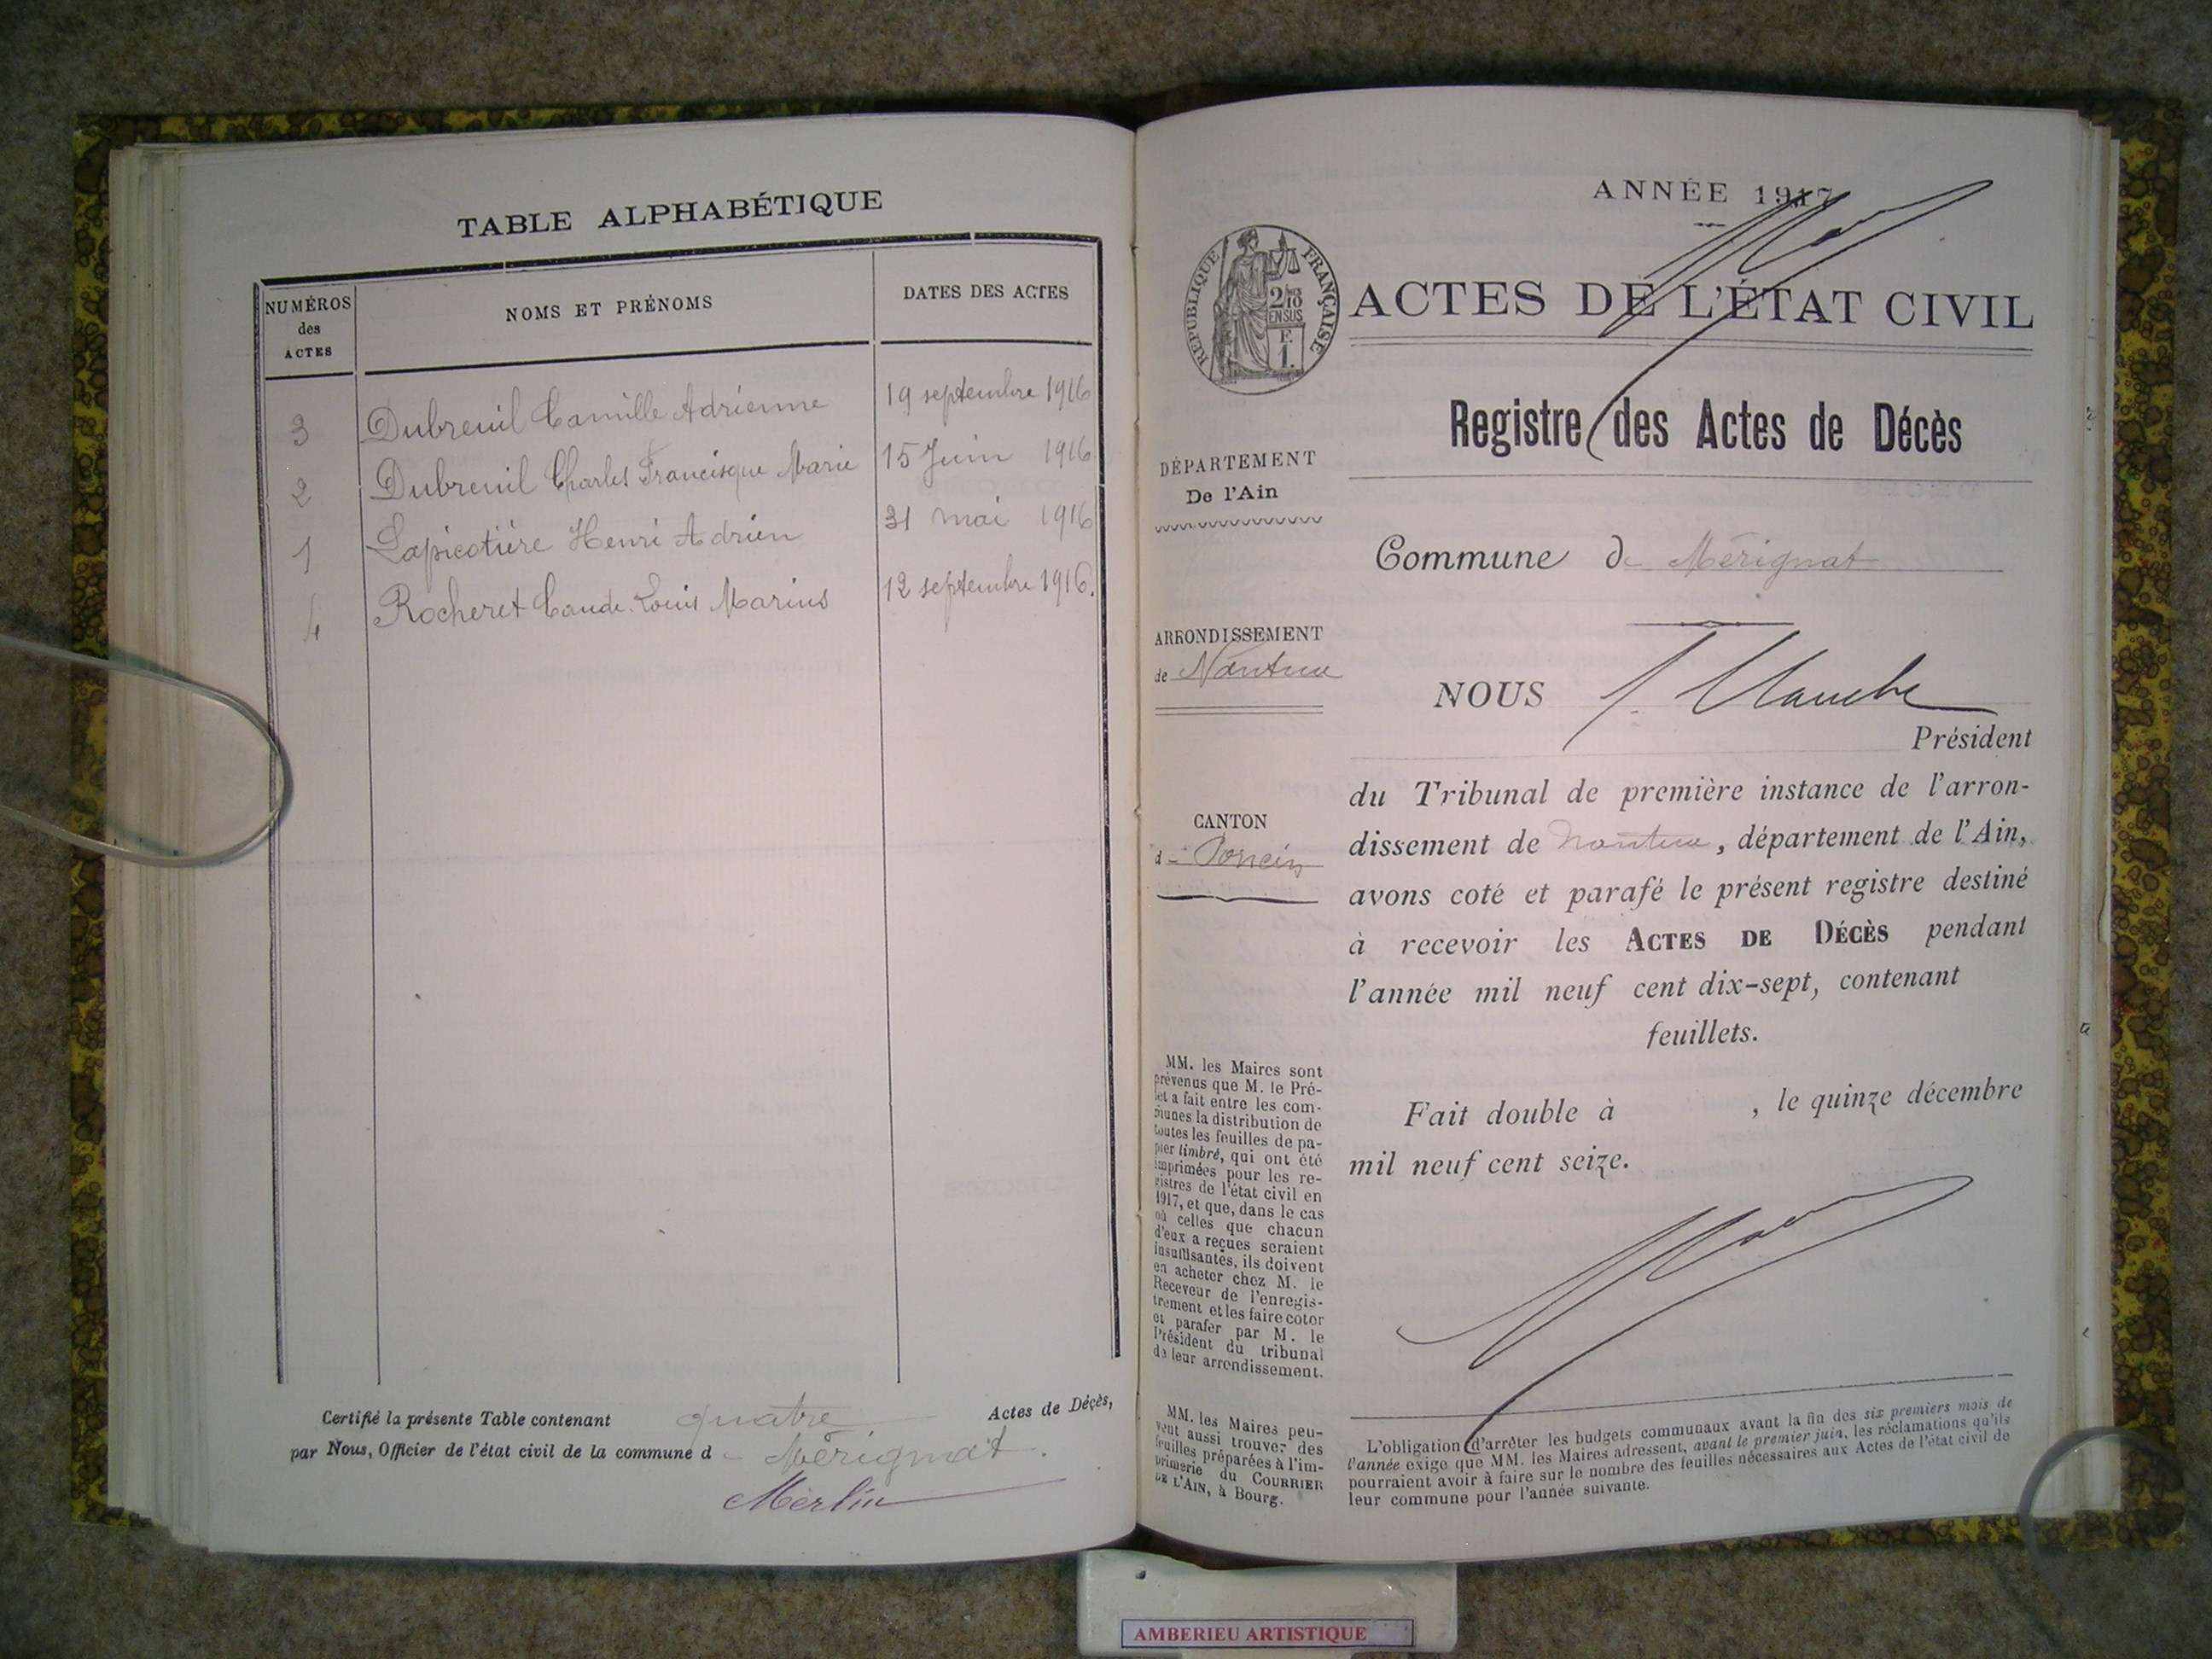 TABLE ALPHABÉTIQUE
NUMÉROS
des
ACTES
NOMS ET PRÉNOMS
DATES DES ACTES
3 Dubreuil Camille Adrienne 19 septembre 1916
2 Dubreuil Charles Francisque Marie 15 Juin 1916
1 Lapicotière Henri Adrien 31 mai 1916
4 Rocheret Caude Louis Marius 12 septembre 1916.
Certifié la présente Table contenant quatre Actes de Décès,
par Nous, Officier de l'état civil de la commune d Mérignat.
Merlin
ANNÉE 1917
RÉPUBLIQUE FRANÇAISE
2/10
EN SUS
F.
1.
ACTES DE L'ÉTAT CIVIL
Registre des Actes de Décès
DÉPARTEMENT
De l'Ain
Commune de Mérignat
ARRONDISSEMENT
de Nantua
NOUS
Président
du Tribunal de première instance de l'arron-
dissement de Nantua, département de l'Ain,
avons coté et parafé le présent registre destiné
à recevoir les ACTES DE DÉCÈS pendant
l'année mil neuf cent dix-sept, contenant
feuillets.
CANTON
d Poncin
Fait double à , le quinze décembre
mil neuf cent seize.
MM. les Maires sont
prévenus que M. le Pré-
fet a fait entre les com-
munes la distribution de
toutes les feuilles de pa-
pier timbré, qui ont été
imprimées pour les re-
gistres de l'état civil en
1917, et que, dans le cas
où celles que chacun
d'eux a reçues seraient
insuffisantes, ils doivent
en acheter chez M. le
Receveur de l'enregis-
trement et les faire coter
et parafer par M. le
Président du tribunal
de leur arrondissement.
MM. les Maires peu-
vent aussi trouver des
feuilles préparées à l'im-
primerie du COURRIER
DE L'AIN, à Bourg.
L'obligation d'arrêter les budgets communaux avant la fin des six premiers mois de
l'année exige que MM. les Maires adressent, avant le premier juin, les réclamations qu'ils
pourraient avoir à faire sur le nombre des feuilles nécessaires aux Actes de l'état civil de
leur commune pour l'année suivante.
AMBERIEU ARTISTIQUE